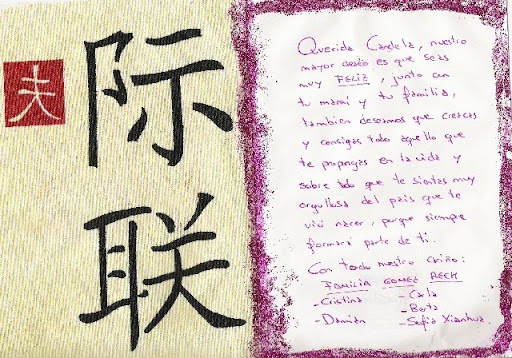 际
联
夫
Querida Candela, nuestro
mayor deseo es que seas
muy FELIZ, junto con
tu mami y tu familia,
tambien deseamos que crezcas
y consigas todo aquello que
te propongas en la vida y
sobre todo que te sientas muy
orgullosa del pais que te
vió nacer, porque siempre
formará parte de ti.
Con todo nuestro cariño:
FAMILIA GOMEZ RECH
- Cristina - Carla
- Berta
- Damián - Sofía Xianhua